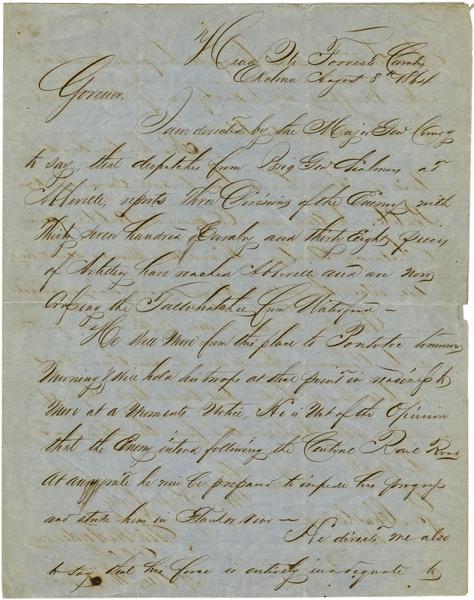 Head Qrs Forrests Cavalry
Okolona August 8th 1864
Governor.
I am directed by the Major Genl Comdg
to say, that dispatches from Brig Genl Chalmers at
Abbeville, reports three Divisions of the Enemy with
thirty seven hundred Cavalry and thirty Eight pieces
of Artillery have reached Abbeville and are now
crossing the Tallahatchie from Waterford —
He will move from this place to Pontotoc tomorrow
Morning & will hold his troops at that point in readiness to
move at a moments Notice, He is Not of the Opinion
that the Enemy intend following the Central Rail Road
At any rate he will be prepared to impede his progress
and strike him in Flank or rear —
He directs me also
to say that his force is entirely inadequate to